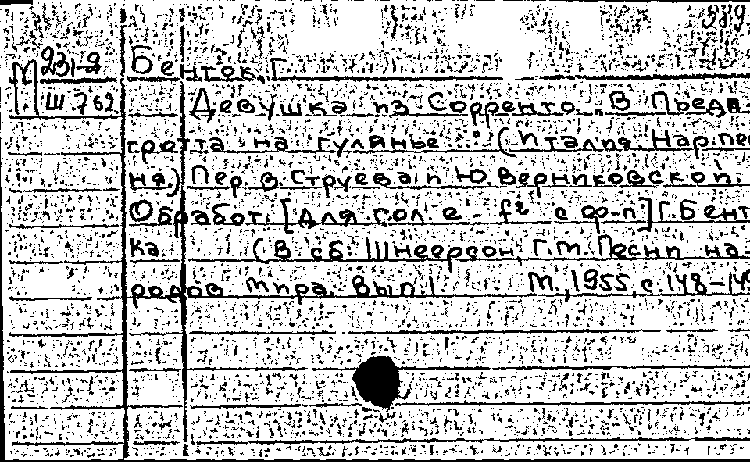 989
М 231-2 Бенток, Г.
Ш 762 Девушка из Сорренто. „В Пьеди
гротта на гулянье...“ (Италия. Нар. пес
ня.) Пер. В. Струева и Ю. Верниковской.
Обработ. [для гол. e¹-f² с ф-п] Г. Бент
ка. (В сб. Шнеерсон, Г.М. Песни на-
родов мира. Вып. 1 М., 1955, с. 148-149